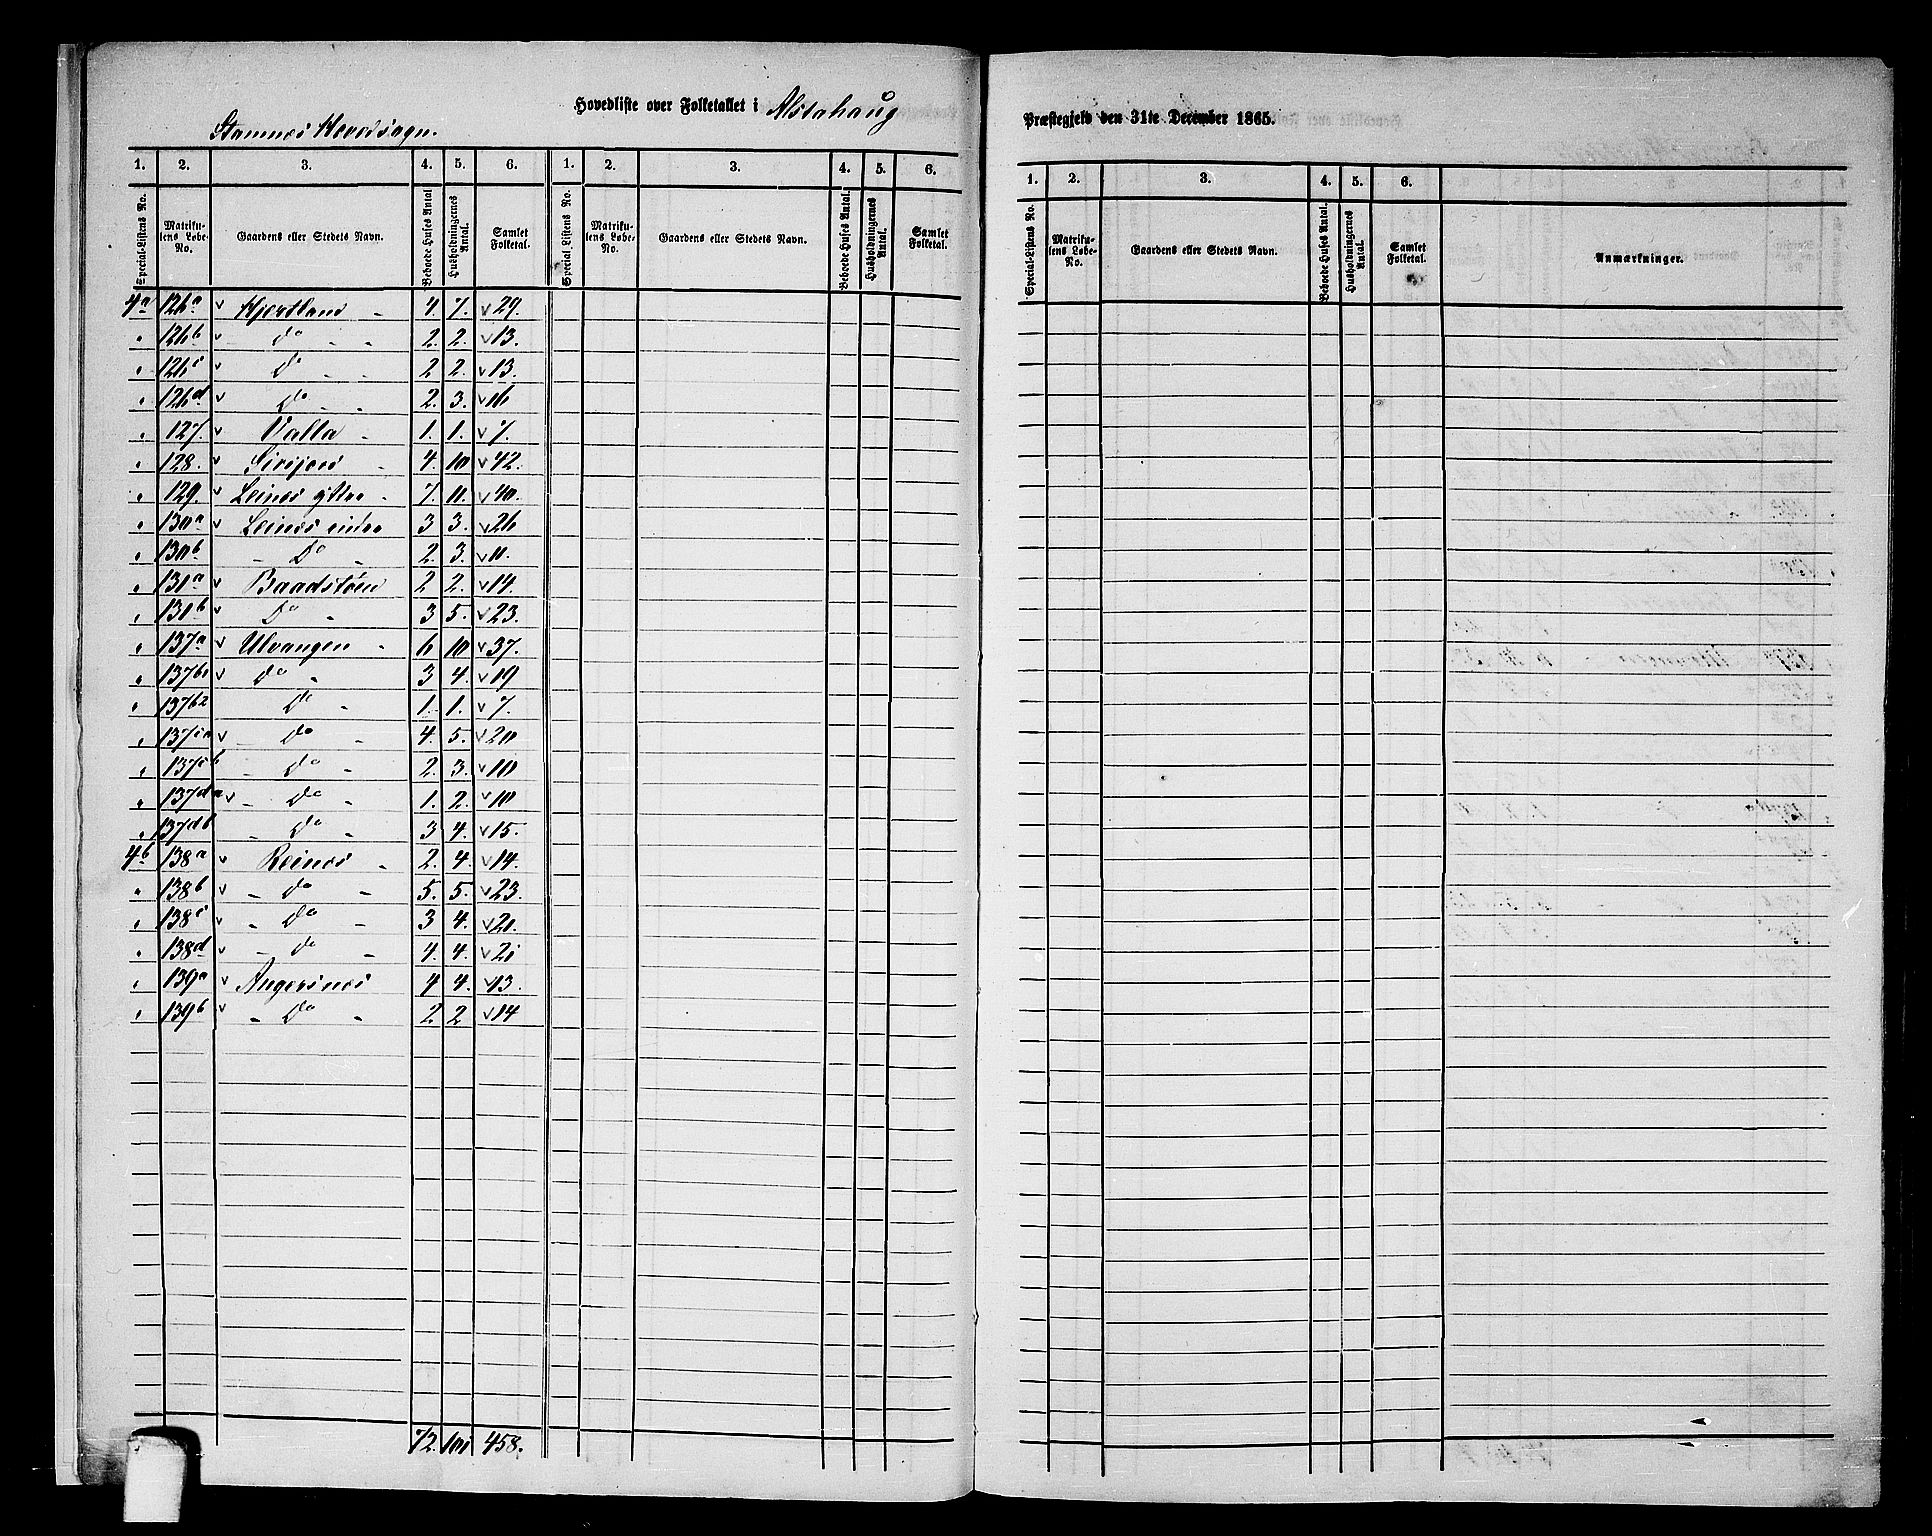 Hovedliste over Folketallet i Alstahaug Præstegjeld den 31te December 1865.
Stamnes Hovedsogn.
1. 2. 3. 4. 5. 6. 1. 2. 3. 4. 5. 6. 1. 2. 3. 4. 5. 6.
Special-Listens No. Matrikulens Løbe-No. Gaardens eller Stedets Navn. Beboede Huses Antal Husholdningernes Antal. Samlet Folketal. Special-Listens No. Matrikulens Løbe-No. Gaardens eller Stedets Navn. Beboede Huses Antal. Husholdningernes Antal. Samlet Folketal. Special-Listens No. Matrikulens Løbe-No. Gaardens eller Stedets Navn. Beboede Huses Antal. Husholdningernes Antal. Samlet Folketal. Anmærkninger.
4a 126a v Hjortland - 4. 7. v 29.
" 126b v do - - 2. 2. v 13.
" 126c v do - - 2 2. v 13.
" 126d v do - - 2. 3. v 16
" 127. v Valla - 1. 1. v 7.
" 128. v - 4. 10 v 42.
" 129. v Leines yttre - 7. 11. v 40.
" 130a v Leines indre 3 3. v 26
" 130b v - do - 2. 3. v 11.
" 131a v Baadstøen 2 2. v 14.
" 131b v do - 3 5. v 23.
" 137a v Ulvangen - 6 10 v 37.
" 137b1 v do - 3 4. v 19
" 137b2 do - 1. 1. v 7.
" 137ca v do - 4. 5. v 20
" 137cb - do - 2. 3. v 10
" 137da v - do - 1. 2. v 10
" 137db - do - 3 4. v 15.
4b 138a v Reines - 2. 4. v 14.
" 138b v - do - 5. 5. v 23.
" 138c v - do - 3 4. v 20.
" 138d v - do - 4. 4. v 21
" 139a v Angersnes 4 4. v 13.
" 139b v - do - 2. 2 v 14
72. 101 458.